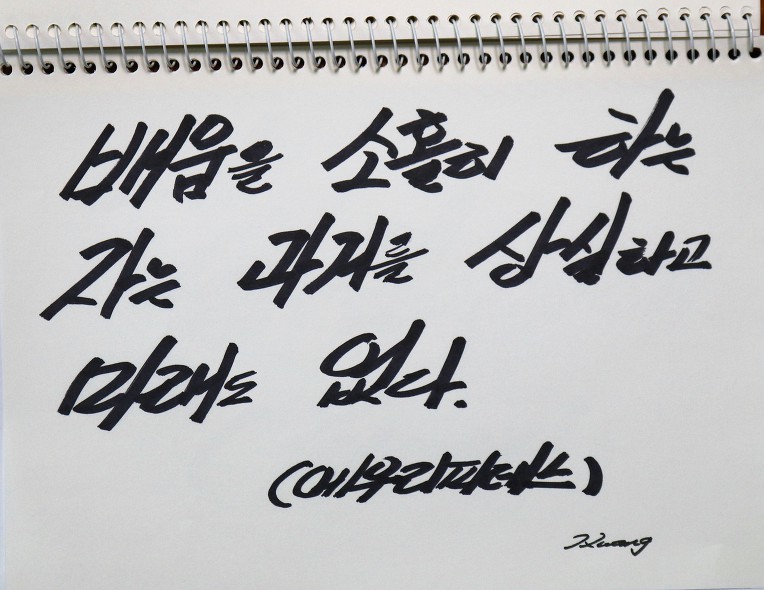 배움을 소홀히 하는
자는 과거를 상실하고
미래도 없다.
(에우리피데스)